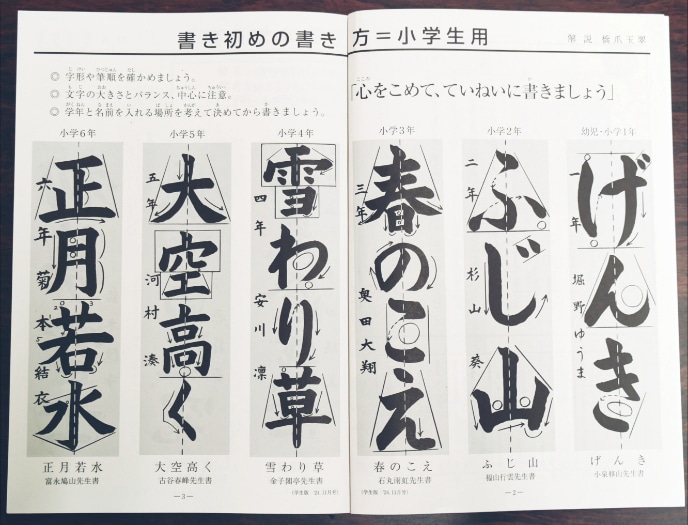 書き初めの書き方＝小学生用
解説 橋爪玉翠
◎ 字形や筆順を確かめましょう。
◎ 文字の大きさとバランス、中心に注意。
◎ 学年と名前を入れる場所を考えて決めてから書きましょう。
「心をこめて、ていねいに書きましょう」
幼児・小学1年
げんき
一年 堀野ゆうま
げんき
小泉移山先生書
小学2年
ふじ山
二年 杉山葵
ふじ山
福山行雲先生書
小学3年
春のこえ
三年 奥田大翔
春のこえ
石丸雨虹先生書
小学4年
雪わり草
四年 安川凛
雪わり草
金子閑亭先生書
小学5年
大空高く
五年 河村湊
大空高く
古谷春峰先生書
小学6年
正月若水
六年 菊本結衣
正月若水
富永鳩山先生書
（学生版 '24.11月号）
―2―
（学生版 '24.11月号）
―3―